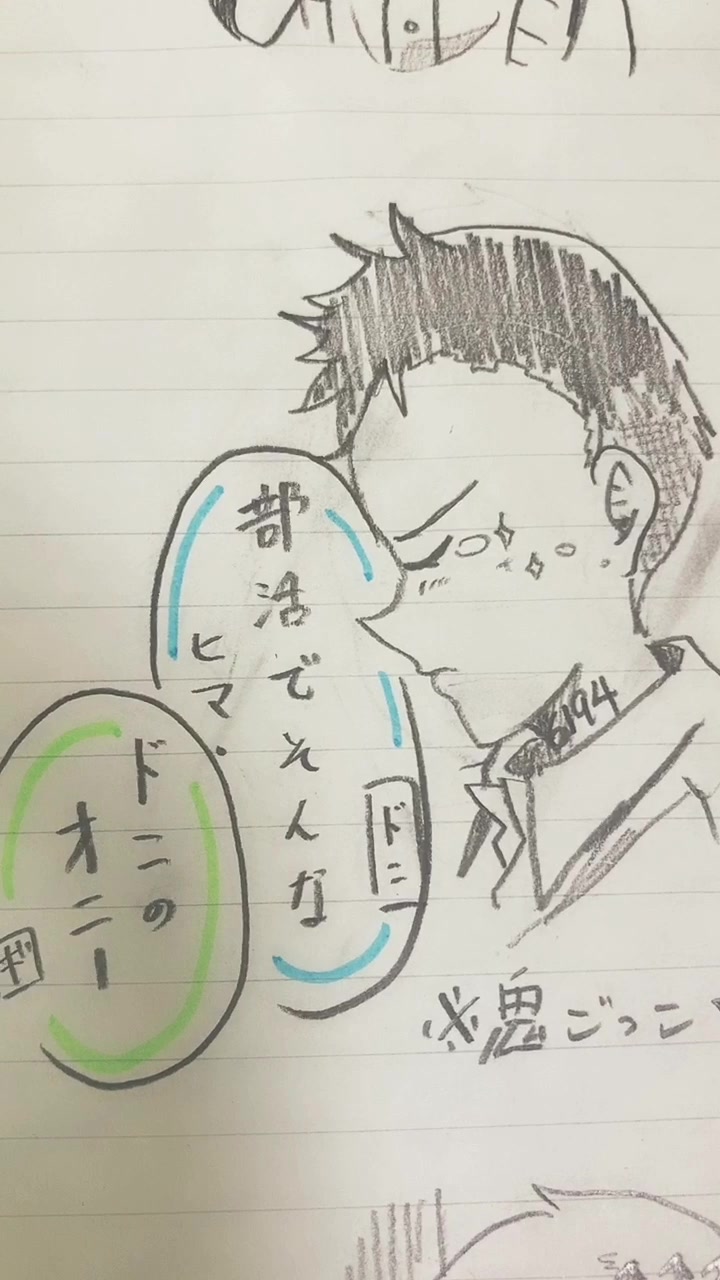 部活でそんな
ヒマ.
ドニ
ドニの
オニー
ギ
6194
※鬼ごっこ